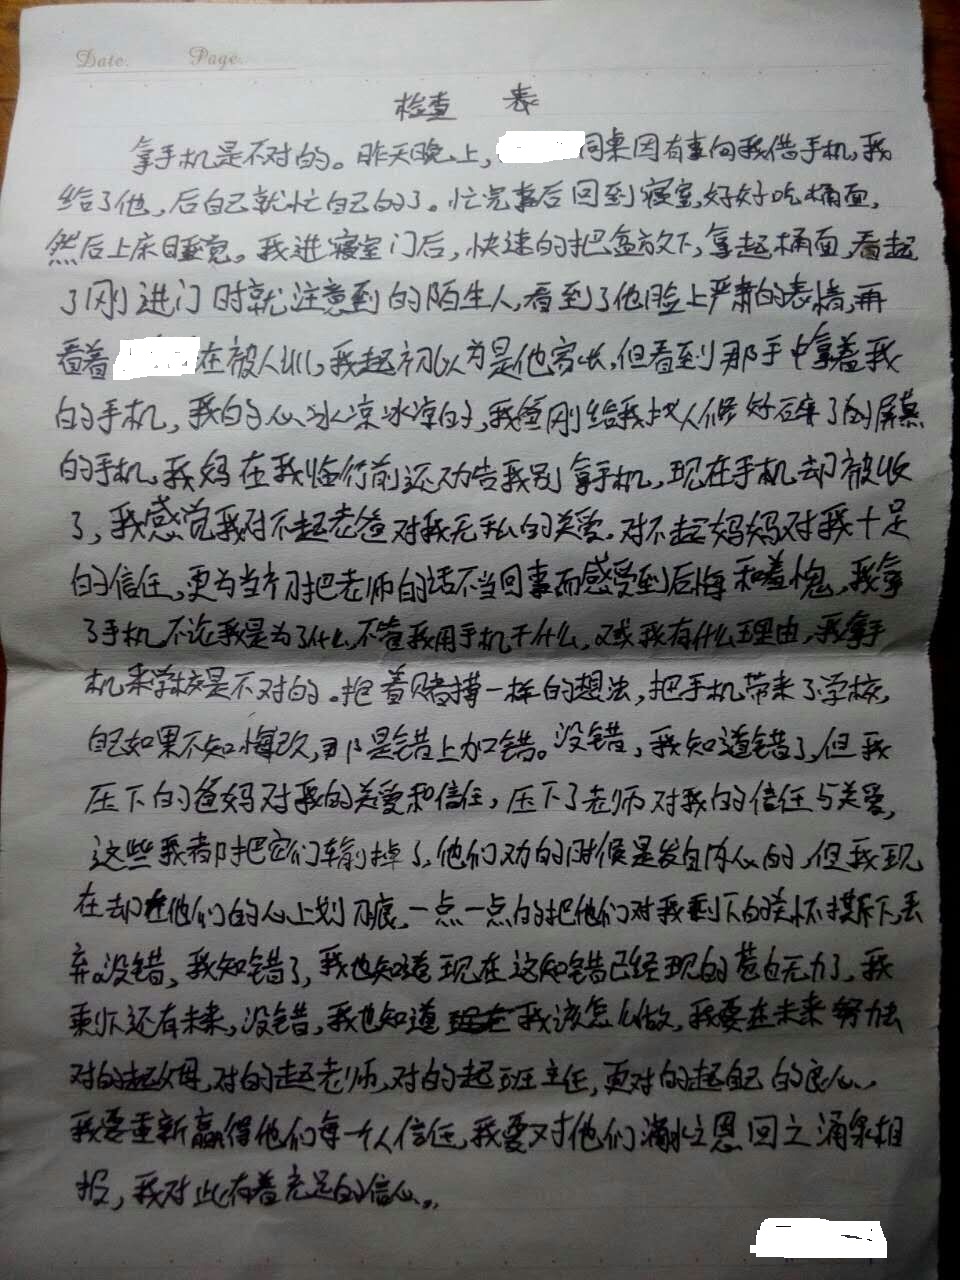 Date. Page.
检查 表
拿手机是不对的。昨天晚上, 同桌因有事向我借手机,我
给了他,后自己就忙自己的了。忙完事后回到寝室,好好吃桶面,
然后上床睡觉。我进寝室门后,快速的把盆放下,拿起桶面,看起
了刚进门时就注意到的陌生人,看到了他脸上严肃的表情,再
看着 在被人训,我起初以为是他家长,但看到那手中拿着我
的手机,我的心冰凉冰凉的,我爸刚给我找人修好碎了的屏幕
的手机,我妈在我临行前还劝告我别拿手机,现在手机却被收
了,我感觉我对不起老爸对我无私的关爱。对不起妈妈对我十足
的信任,更为当初把老师的话不当回事而感受到后悔和羞愧,我拿
了手机不论我是为了什么,不管我用手机干什么,又或我有什么理由,我拿手
机来学校是不对的。抱着赌博一样的想法,把手机带来了学校,
自己如果不知悔改,那是错上加错。没错,我知道错了,但我
压下的爸妈对我的关爱和信任,压下了老师对我的信任与关爱,
这些我都把它们输掉了,他们劝的时候是发自内心的,但我现
在却在他们的心上划刀痕,一点一点的把他们对我剩下的关怀撕下,丢
弃。没错,我知错了,我也知道现在这知错已经现的苍白无力了,我
还有未来,没错,我也知道我该怎么做,我要在未来努力去
对的起父母,对的起老师,对的起班主任,更对的起自己的良心..
我要重新赢得他们每一个人信任,我要对他们滴水之恩回之涌泉相
报,我对此有着充足的信心...